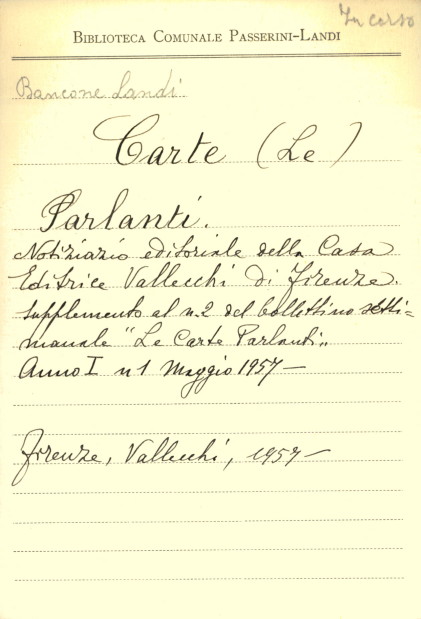 In corso
BIBLIOTECA COMUNALE PASSERINI-LANDI
Bancone Landi
Carte (Le)
Parlanti.
Notiziario editoriale della Casa
Editrice Vallecchi di Firenze.
Supplemento al n. 2 del bollettino setti=
manale "Le Carte Parlanti„
Anno I n 1 Maggio 1957 —
Firenze, Vallecchi, 1957 —